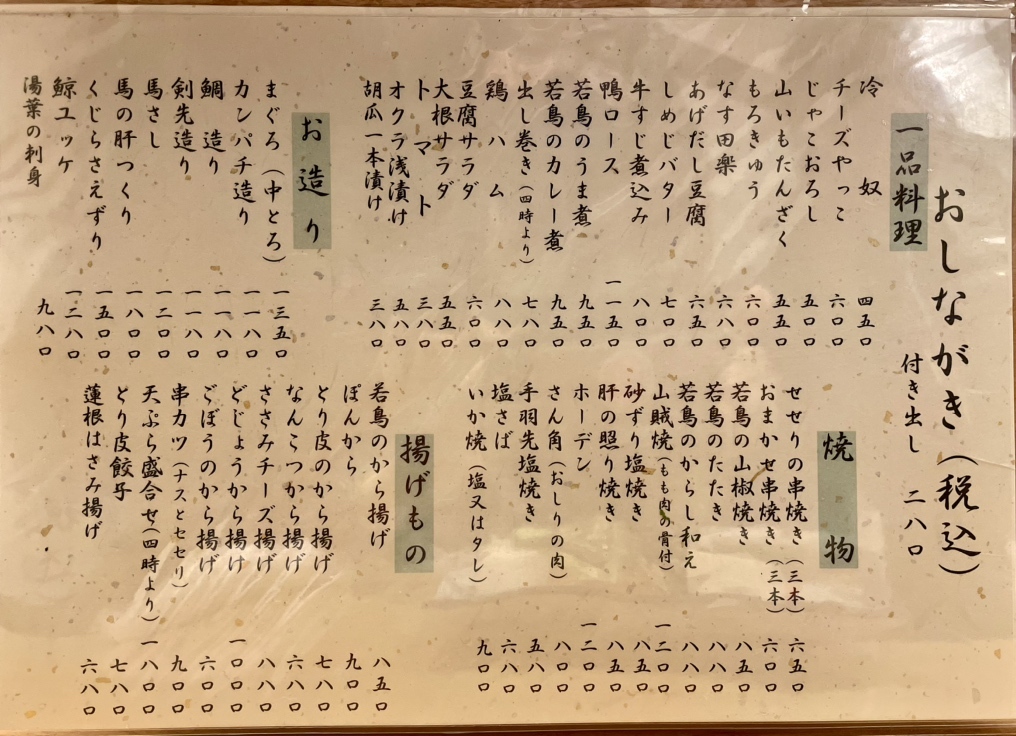 おしながき（税込）
付き出し　二八〇
一品料理
冷奴　四五〇
チーズやっこ　六〇〇
じゃこおろし　五〇〇
山いもたんざく　五五〇
もろきゅう　六〇〇
なす田楽　六八〇
あげだし豆腐　六五〇
しめじバター　七〇〇
牛すじ煮込み　八〇〇
鴨ロース　一一五〇
若鳥のうま煮　九五〇
若鳥のカレー煮　九五〇
出し巻き（四時より）　七八〇
鶏ハム　八八〇
豆腐サラダ　六〇〇
大根サラダ　五五〇
トマト　三八〇
オクラ浅漬け　五八〇
胡瓜一本漬け　三八〇
お造り
まぐろ（中とろ）　一三五〇
カンパチ造り　一一八〇
鯛造り　一一八〇
剣先造り　一一八〇
馬さし　一二〇〇
馬の肝つくり　一八〇〇
くじらさえずり　一五〇〇
鯨ユッケ　一二八〇
湯葉の刺身　九八〇
焼物
せせりの串焼き（三本）　六五〇
おまかせ串焼き（三本）　六〇〇
若鳥の山椒焼き　八五〇
若鳥のたたき　八八〇
若鳥のからし和え　八八〇
山賊焼（もも肉の骨付）　一二〇〇
砂ずり塩焼き　八五〇
肝の照り焼き　八五〇
ホーデン　一二〇〇
さん角（おしりの肉）　八〇〇
手羽先塩焼き　五八〇
塩さば　六八〇
いか焼（塩又はタレ）　九〇〇
揚げもの
若鳥のから揚げ　八五〇
ぽんから　九〇〇
とり皮のから揚げ　七八〇
なんこつから揚げ　六八〇
ささみチーズ揚げ　八八〇
どじょうから揚げ　一〇〇〇
ごぼうのから揚げ　六〇〇
串カツ（ナスとセセリ）　九〇〇
天ぷら盛合せ（四時より）　一八〇〇
とり皮餃子　七八〇
蓮根はさみ揚げ　六八〇